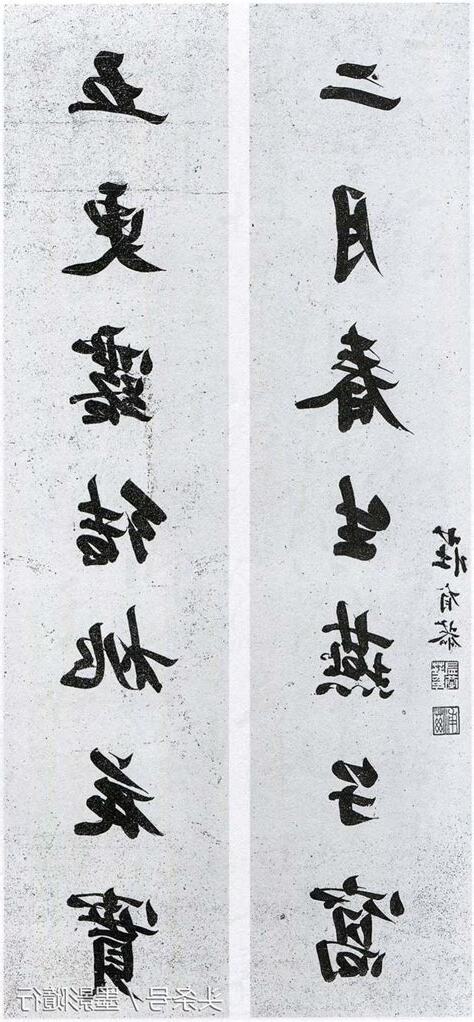 五更露結桃花實
二月春生燕子窩
莊有恭
头条号/墨影隨行